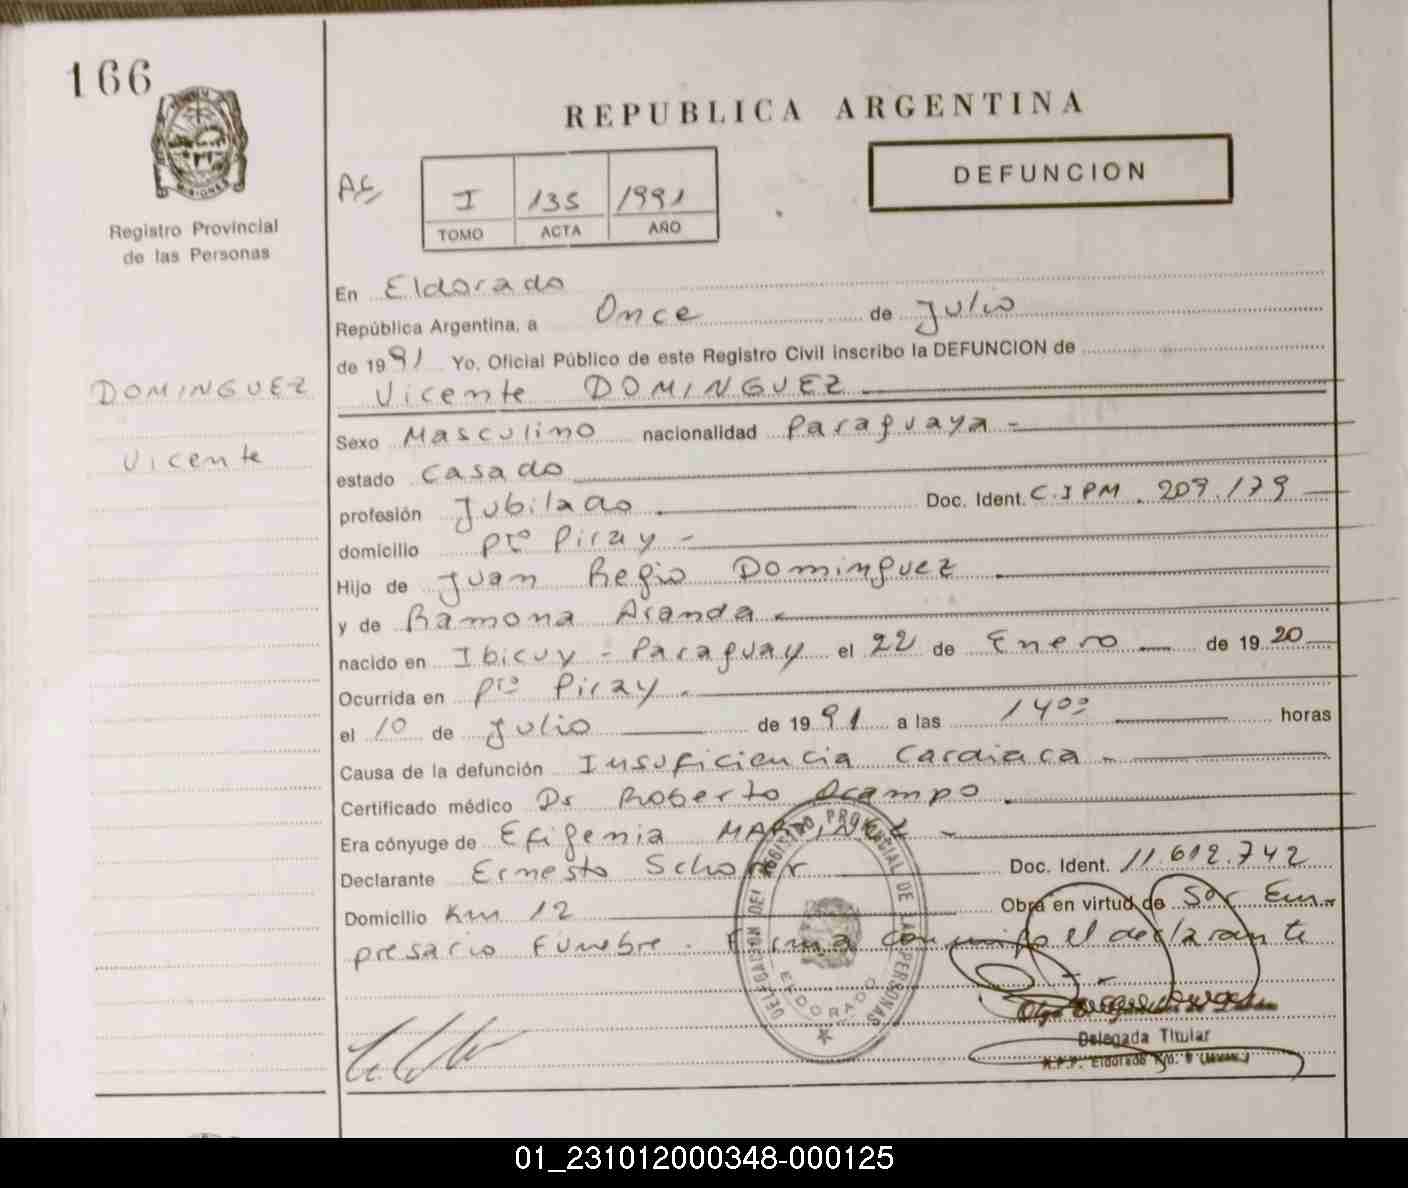 166
REPUBLICA ARGENTINA
DEFUNCION
Registro Provincial
de las Personas
MISIONES
I 135 1991
TOMO ACTA AÑO
En Eldorado
República Argentina, a Once de Julio
de 1991 Yo, Oficial Público de este Registro Civil inscribo la DEFUNCION de
Vicente DOMINGUEZ
DOMINGUEZ
Vicente
Sexo Masculino nacionalidad Paraguaya
estado Casado
profesión Jubilado Doc. Ident. C.I PM. 209.179
domicilio Pto Piray
Hijo de Juan Regio Dominguez
y de Ramona Aranda
nacido en Ibicuy - Paraguay el 22 de Enero de 1920
Ocurrida en Pto Piray
el 10 de Julio de 1991 a las 1400 horas
Causa de la defunción Insuficiencia Cardiaca
Certificado médico Dr Roberto Ocampo
Era cónyuge de Efigenia MARTINEZ
Declarante Ernesto Schorr Doc. Ident. 11.612.742
Domicilio Km 12 Obra en virtud de Ser Em-
presario Funebre. Firma conmigo el declarante
DELEGACION DEL REGISTRO PROVINCIAL DE LAS PERSONAS
ELDORADO
Delegada Titular
R.P.P. Eldorado
01_231012000348-000125